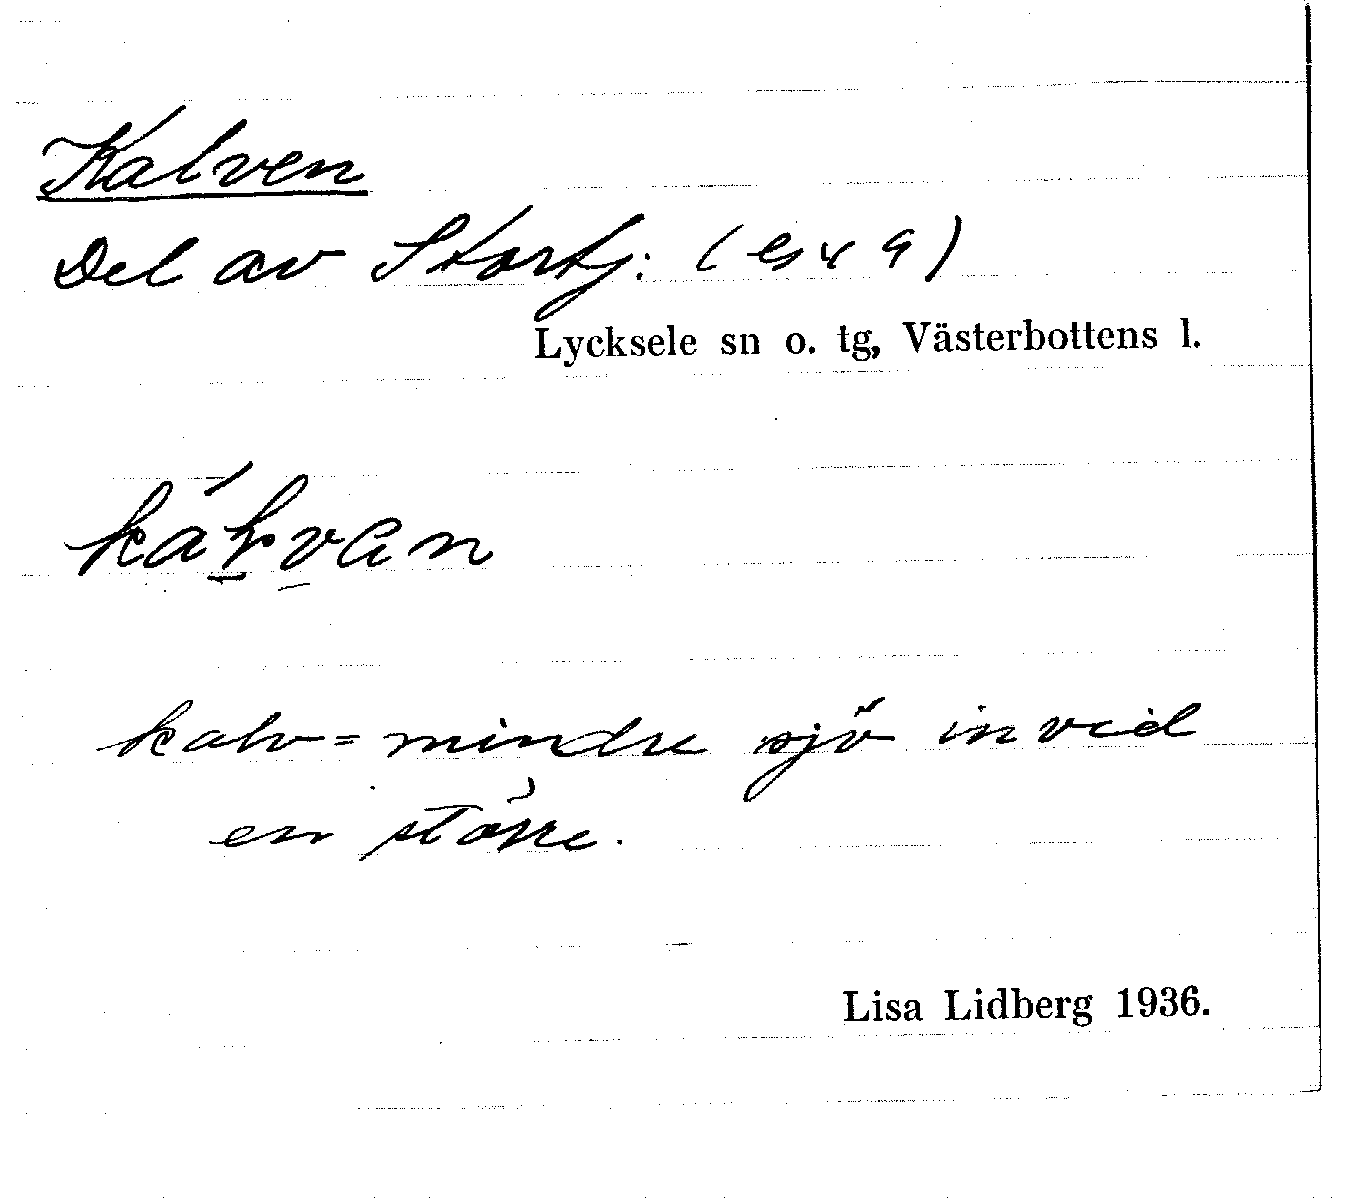 Kalven
Del av Stortj: (
Lycksele sn o. tg, Västerbottens l.
kalv = mindre sjö invid
en större.
Lisa Lidberg 1936.